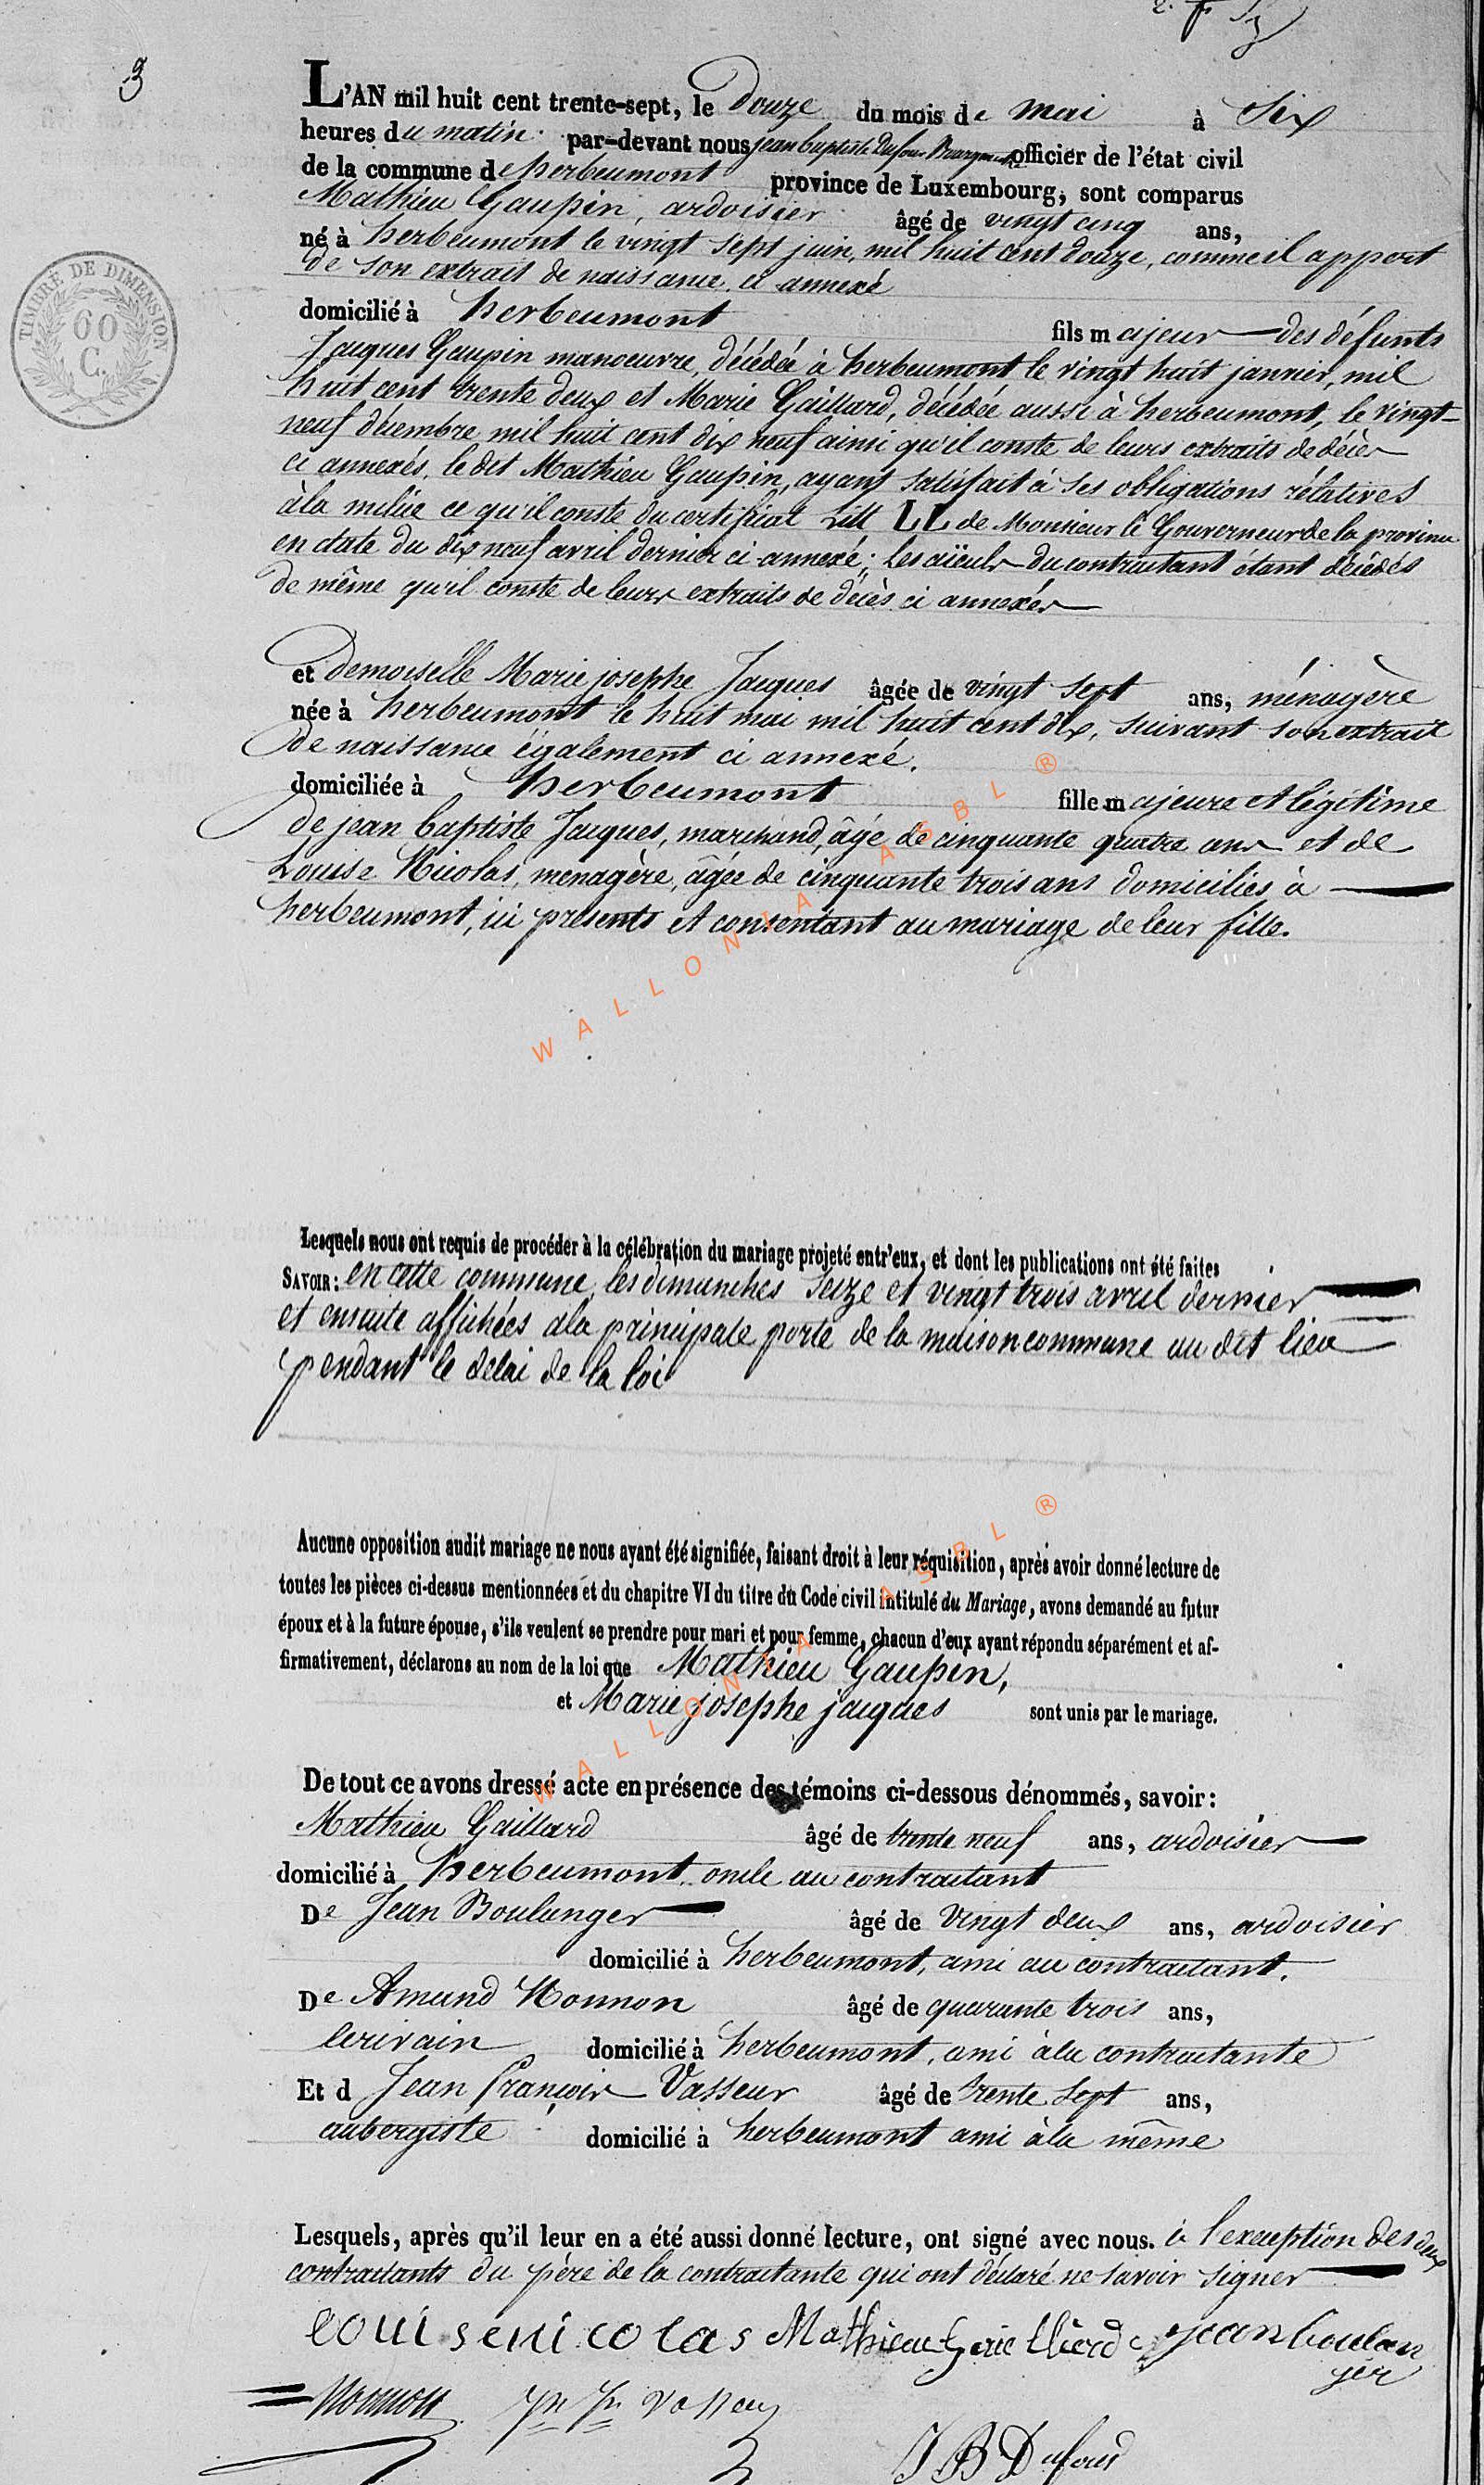 3
TIMBRE DE DIMENSION
60
C.
L'AN mil huit cent trente-sept, le Douze du mois de mai à Six
heures du matin par-devant nous jean baptiste Dufour Bourgmestre officier de l'état civil
de la commune de herbeumont province de Luxembourg, sont comparus
Mathieu Gaupin, ardoisier âgé de vingt cinq ans,
né à herbeumont le vingt sept juin, mil huit cent douze, comme il appert
de son extrait de naissance, ci annexé
domicilié à herbeumont fils majeur des défunts
Jacques Gaupin manoeuvre, décédée à herbeumont le vingt huit janvier, mil
huit cent trente deux et Marie Gaillard, décédée aussi à herbeumont, le vingt-
neuf décembre mil huit cent dix neuf ainsi qu'il conste de leurs extraits de décès
ci annexés. le dit Mathieu Gaupin, ayant satisfait à ses obligations rélatives
à la milice ce qu'il conste du certificat Litt LL de Monsieur le Gouverneur de la province
en date du dix neuf avril dernier ci-annexé; Les aïeuls du contractant étant décédés
de même qu'il conste de leurs extraits de décès ci annexés
et Demoiselle Marie josephe Jacques âgée de vingt sept ans, ménagère
née à herbeumont le huit mai mil huit cent dix, suivant son extrait
de naissance également ci annexé.
domiciliée à herbeumont fille majeure et légitime
de jean baptiste Jacques, marchand, âgé de cinquante quatre ans et de
Louise Nicolas, menagère, âgée de cinquante trois ans domiciliés à
herbeumont, ici présents et consentant au mariage de leur fille.
WALLONIA ASBL ®
Lesquels nous ont requis de procéder à la célébration du mariage projeté entr'eux, et dont les publications ont été faites
SAVOIR: en cette commune, les dimanches seize et vingt trois avril dernier
et ensuite affichées à la principale porte de la maison commune au dit lieu
pendant le delai de la loi
Aucune opposition audit mariage ne nous ayant été signifiée, faisant droit à leur réquisition, après avoir donné lecture de
toutes les pièces ci-dessus mentionnées et du chapitre VI du titre du Code civil intitulé du Mariage, avons demandé au futur
époux et à la future épouse, s'ils veulent se prendre pour mari et pour femme, chacun d'eux ayant répondu séparément et af-
firmativement, déclarons au nom de la loi que Mathieu Gaupin,
et Marie josephe jacques sont unis par le mariage.
WALLONIA ASBL ®
De tout ce avons dressé acte en présence des témoins ci-dessous dénommés, savoir:
Mathieu Gaillard âgé de trente neuf ans, ardoisier
domicilié à herbeumont, oncle au contractant
De Jean Boulanger âgé de vingt deux ans, ardoisier
domicilié à herbeumont, ami au contractant.
De Amand Nonnon âgé de quarante trois ans,
ecrivain domicilié à herbeumont, ami à la contractante
Et d Jean françois Vasseur âgé de trente sept ans,
aubergiste domicilié à herbeumont ami à la même
Lesquels, après qu'il leur en a été aussi donné lecture, ont signé avec nous. à l'exception des deux
contractants du père de la contractante qui ont déclaré ne savoir signer
Louise nicolas Mathieu jean boulan
ger
Nonnon Jn fr vasseur
J B Dufour